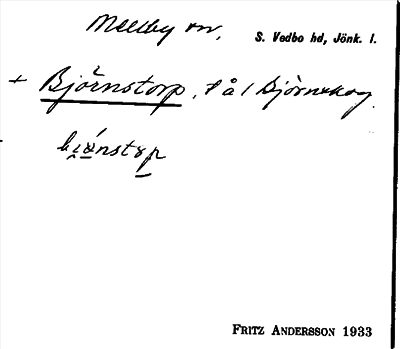 Mellby sn, S. Vedbo hd, Jönk. l.
+ Björnstorp, t å 1 Björnskog.
FRITZ ANDERSSON 1933